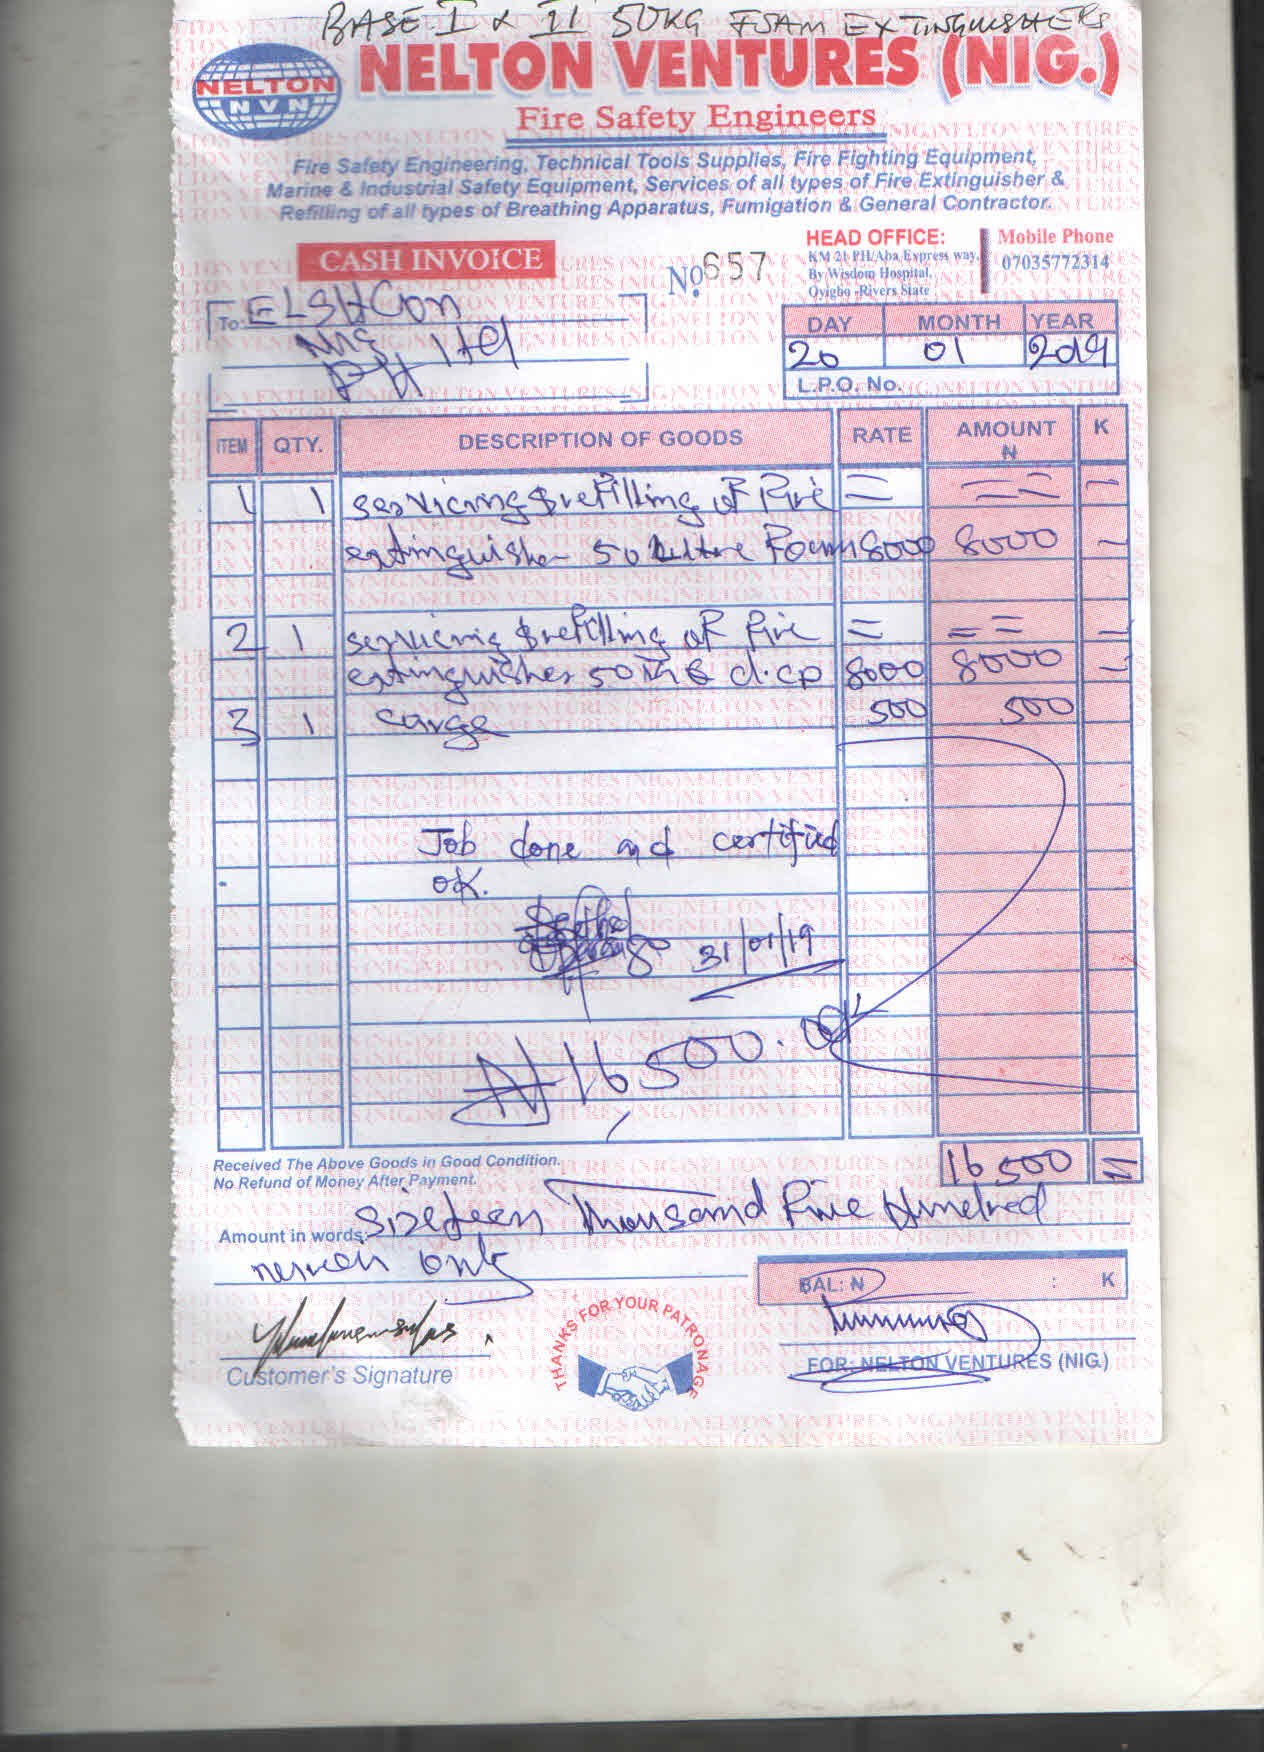 BASE I & II 50KG FOAM EXTINGUISHERS
NELTON
NVN
NELTON VENTURES (NIG.)
Fire Safety Engineers
Fire Safety Engineering, Technical Tools Supplies, Fire Fighting Equipment,
Marine & Industrial Safety Equipment, Services of all types of Fire Extinguisher &
Refilling of all types of Breathing Apparatus, Fumigation & General Contractor.
CASH INVOICE
No. 657
HEAD OFFICE:
KM 21 PH/Aba Express way,
By Wisdom Hospital,
Oyigbo -Rivers State
Mobile Phone
07035772314
To: ELSHCON
NIG
DAY MONTH YEAR
20 01 2019
L.P.O. No.
ITEM QTY. DESCRIPTION OF GOODS RATE AMOUNT N K
1 1 servicing & refilling of fire = = = -
extinguisher 50 Foam 8000 8000 -
2 1 & refilling of fire = = = -
extinguisher 50 & d.cp 8000 8000 -
3 1 carge 500 500
Job done and certified
OK.
31/01/19
₦16500.00K
Received The Above Goods in Good Condition.
No Refund of Money After Payment.
16500 =
Amount in words: sixteen Thousand five Hundred
only
BAL: N : K
Customer's Signature
THANKS FOR YOUR PATRONAGE
FOR: NELTON VENTURES (NIG.)